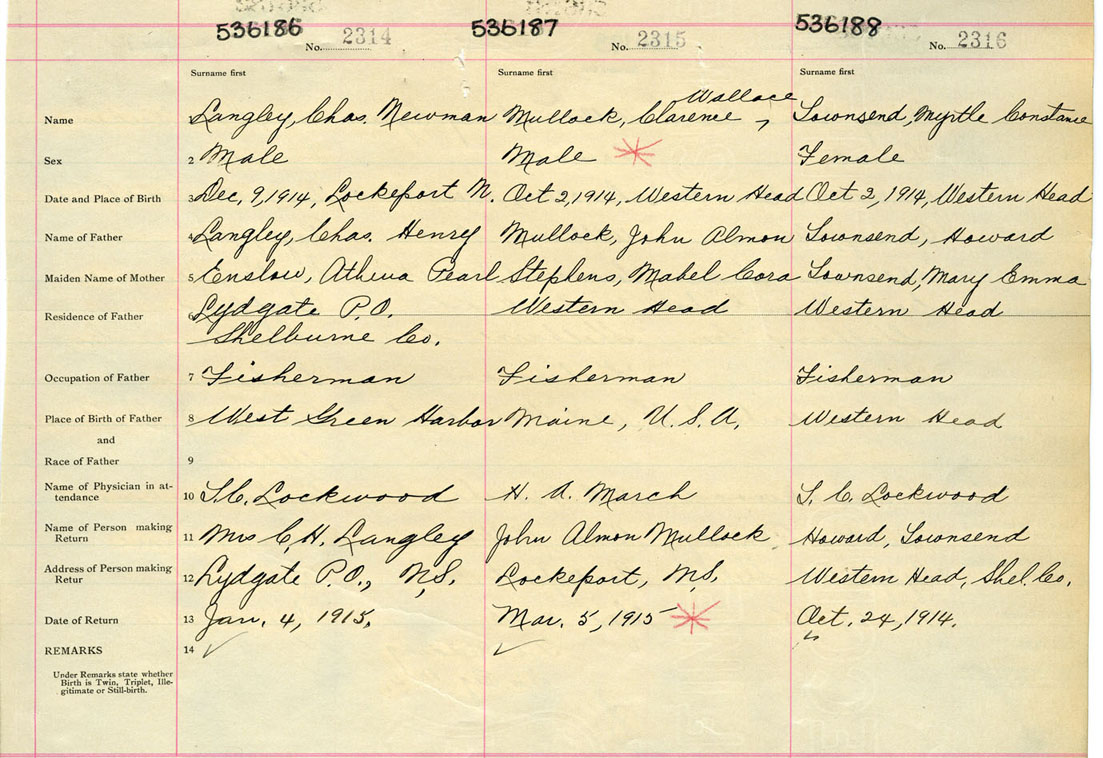 536186 536187 536188
No. 2314 No. 2315 No. 2316
Surname first Surname first Surname first
Wallace
Name Langley, Chas. Newman Mullock, Clarence , Townsend, Myrtle Constance
Sex 2 Male Male Female
Date and Place of Birth 3 Dec, 9, 1914, Lockeport N. Oct 2, 1914, Western Head Oct 2, 1914, Western Head
Name of Father 4 Langley, Chas. Henry Mullock, John Almon Townsend, Howard
Maiden Name of Mother 5 Enslow, Pearl Stephens, Mabel Cora Townsend, Mary Emma
Residence of Father 6 Lydgate P.O. Western Head Western Head
Shelburne Co.
Occupation of Father 7 Fisherman Fisherman Fisherman
Place of Birth of Father 8 West Green Harbor Maine, U.S.A. Western Head
and
Race of Father 9
Name of Physician in at-
tendance 10 S.C. Lockwood H. A. March S. C. Lockwood
Name of Person making
Return 11 Mrs C, H. Langley John Almon Mullock Howard, Townsend
Address of Person making
Retur 12 Lydgate P.O., N,S, Lockeport, N.S. Western Head, Shel. Co.
Date of Return 13 Jan. 4, 1915. Mar. 5, 1915 Oct. 24, 1914.
REMARKS 14
Under Remarks state whether
Birth is Twin, Triplet, Ille-
gitimate or Still-birth.